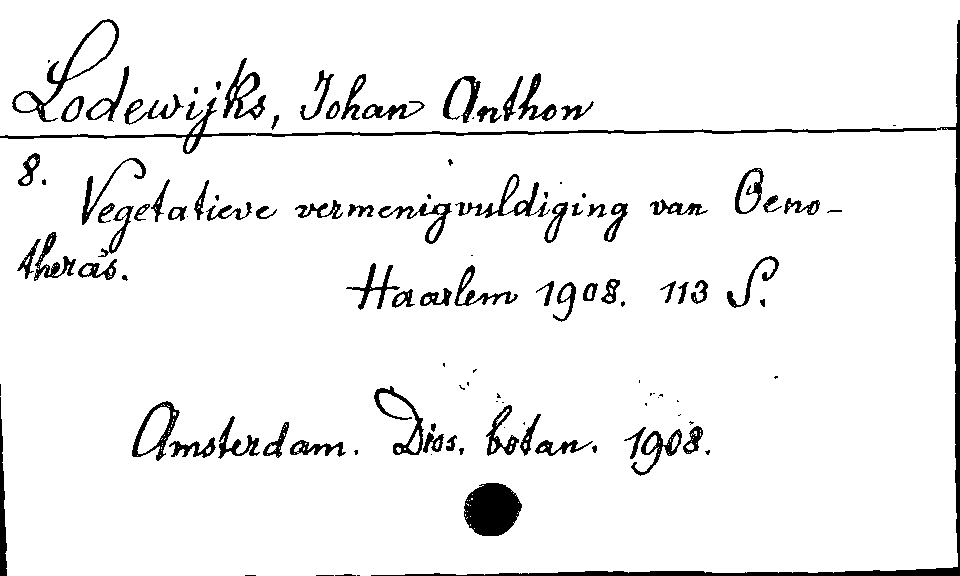 Lodewijks, Johan Anthon
8.
Vegetatieve vermenigvuldiging van Oeno-
thera's.
Haarlem 1908. 113 S.
Amsterdam. Diss. botan. 1908.